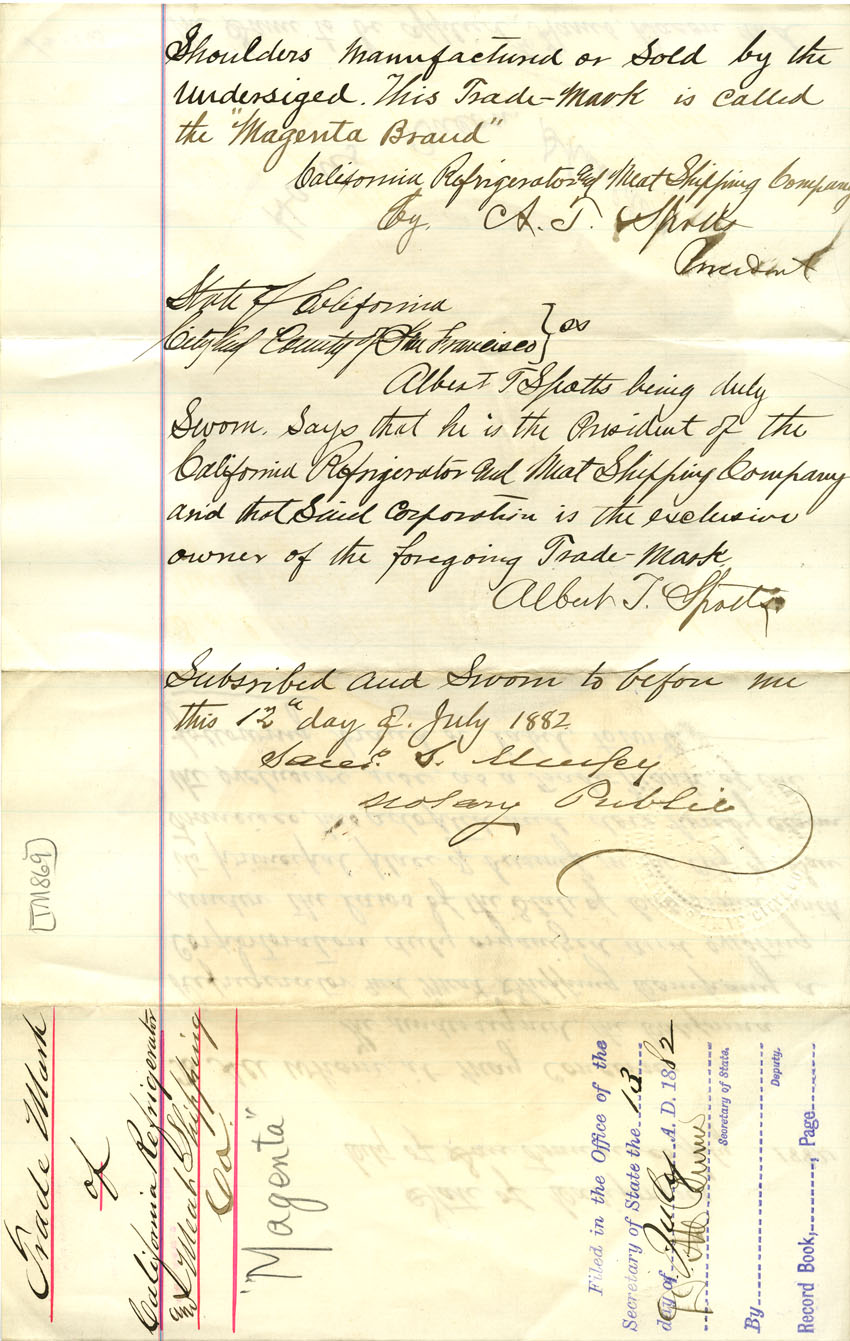 Shoulders manufactured or sold by the
undersiged. This Trade-Mark is called
the "Magenta Brand"
California Refrigerator and Meat Shipping Company
By. A. T. Spotts
President
State of California
City and County of San Francisco } ss
Albert T Spotts being duly
Sworn. Says that he is the President of the
California Refrigerator and Meat Shipping Company
and that Said Corporation is the exclusive
owner of the foregoing Trade-Mark.
Albert T. Spotts
Subsribed and Sworn to before me
this 12th day of July 1882
S.
Notary Public
TM869
Trade Mark
of
California Refrigerator
and Meat Shipping
Co.
"Magenta"
Filed in the Office of the
Secretary of State the 13
day of July A. D. 1882
Secretary of State.
By
Deputy.
Record Book, , Page